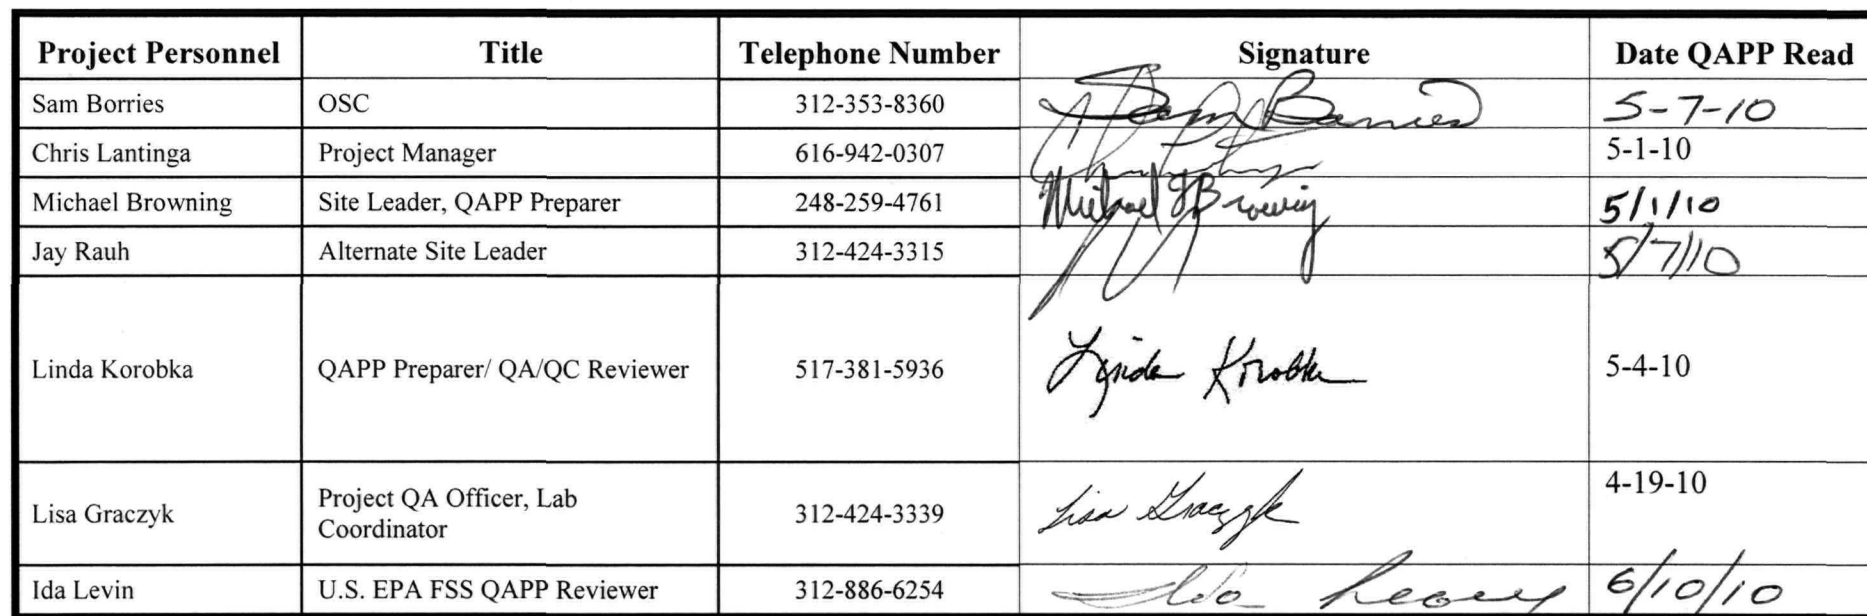 Project Personnel Title Telephone Number Signature Date QAPP Read
Sam Borries OSC 312-353-8360 Sam Borries 5-7-10
Chris Lantinga Project Manager 616-942-0307 5-1-10
Michael Browning Site Leader, QAPP Preparer 248-259-4761 Michael Browning 5/1/10
Jay Rauh Alternate Site Leader 312-424-3315 5/7/10
Linda Korobka QAPP Preparer/ QA/QC Reviewer 517-381-5936 Linda Korobka 5-4-10
Lisa Graczyk Project QA Officer, Lab
Coordinator 312-424-3339 Lisa Graczyk 4-19-10
Ida Levin U.S. EPA FSS QAPP Reviewer 312-886-6254 Ida 6/10/10